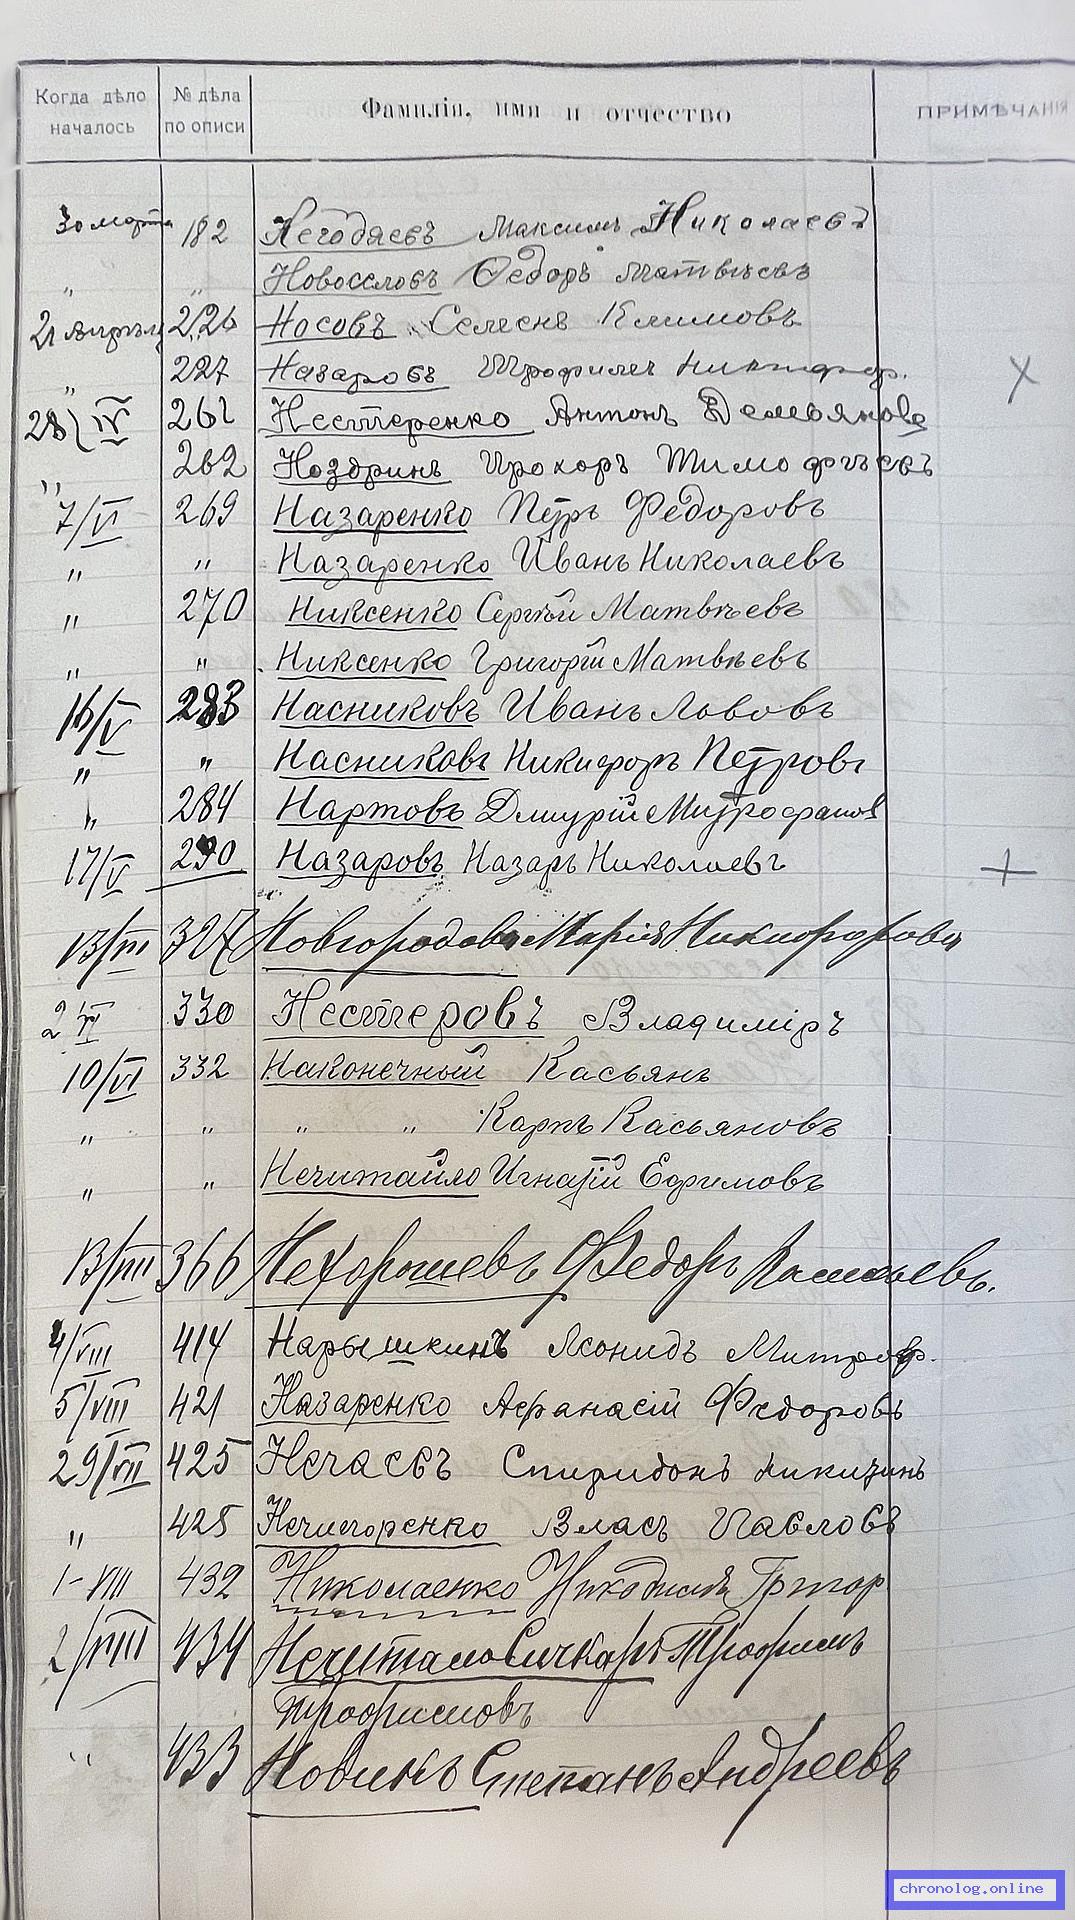 Когда дѣло началось № дѣла по описи Фамилія, имя и отчество ПРИМѢЧАНІЯ
30 марта 182 Негодяевъ Максимъ Николаевъ
" " Новоселовъ Ѳедоръ Матвѣевъ
21 Апрѣля 226 Носовъ Климовъ
" 227 Назаровъ Никифор. X
28/IV 261 Нестеренко Антонъ Демьяновъ
" 262 Ноздринъ Прохоръ Тимофѣевъ
7/V 269 Назаренко Петръ Федоровъ
" " Назаренко Иванъ Николаевъ
" 270 Никсенко Сергѣй Матвѣевъ
" " Никсенко Григорій Матвѣевъ
16/V 283 Насниковъ Иванъ Львовъ
" " Насниковъ Никифоръ Петровъ
" 284 Нартовъ Дмитрій Митрофанов
17/V 290 Назаровъ Назаръ Николаевъ +
13/III 327 Новгородова Марія Никифорова
2 330 Нестеровъ Владиміръ
10/VI 332 Наконечный Касьянъ
" " " " Карпъ Касьяновъ
" " Нечитайло Игнатій Ефимовъ
13/III 366 Нехорошевъ Федоръ Васильевъ.
4/VIII 414 Нарышкинъ Леонидъ Митроф.
5/VIII 421 Назаренко Афанасій Федоровъ
29/VII 425 Нечаевъ Спиридонъ Никитинъ
" 428 Власъ Павловъ
1-VIII 432 Николаенко Никодимъ Григор
2/VIII 434 Нечитайло Сичкарь Трофимъ
Трофимовъ
" 433 Новикъ Степанъ Андреевъ
chronolog.online